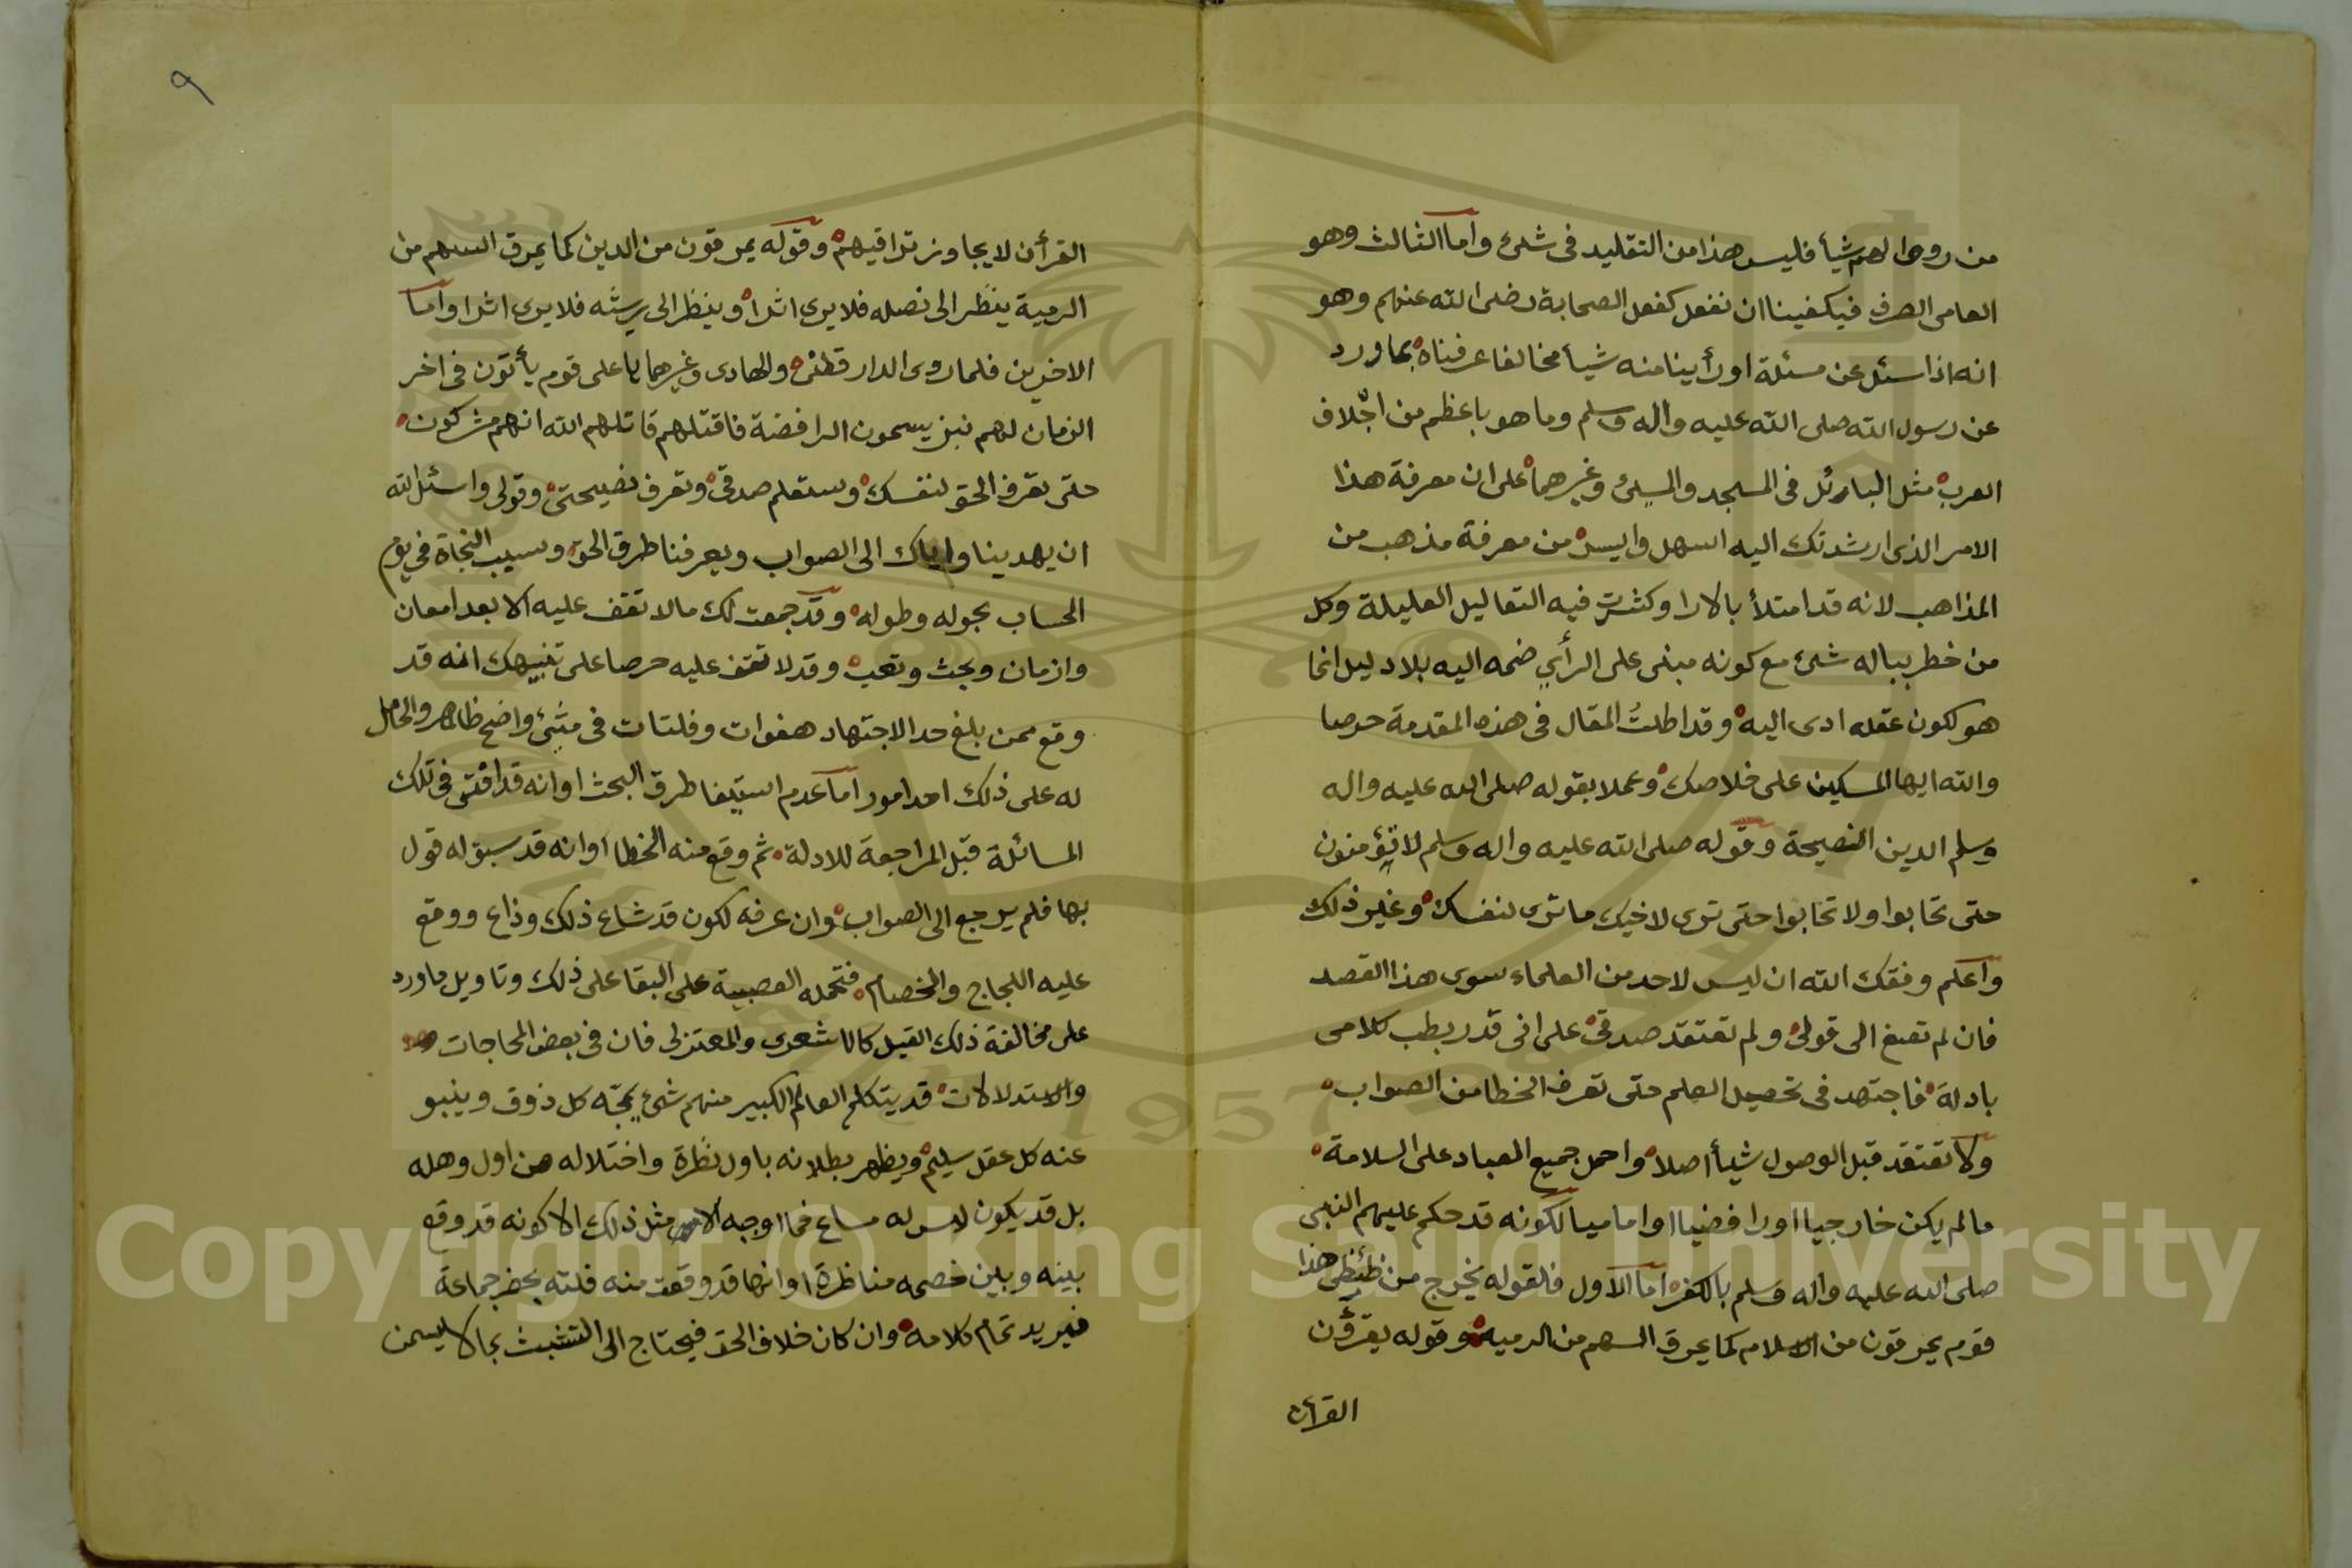 من روى لهم شيأ فليس هذا من التقليد في شئ واما الثالث وهو
العامي الصرف فيكفينا ان نفعل كفعل الصحابة رضى الله عنهم وهو
انه اذا سئل عن مسئلة او رأينا منه شيأ مخالفا عرفناه بما ورد
عن رسول الله صلى الله عليه واله وسلم وما هو باعظم من اجلاف
العرب مثل البائل في المسجد والمسئ وغيرهما على ان معرفة هذا
الامر الذى ارشدتك اليه اسهل وايسر من معرفة مذهب من
المذاهب لانه قد امتلأ بالارا وكثرت فيه التعاليل العليلة وكل
من خطر بباله شئ مع كونه مبنى على الرأي ضمه اليه بلا دليل انما
هو لكون عقله ادى اليه وقد اطلت المقال في هذه المقدمة حرصا
والله ايها المسكين على خلاصك وعملا بقوله صلى الله عليه واله
وسلم الدين النصيحة وقوله صلى الله عليه واله وسلم لا تؤمنون
حتى تحابوا ولا تحابوا حتى ترى لاخيك ما ترى لنفسك وغير ذلك
واعلم وفقك الله ان ليس لاحد من العلماء سوى هذا القصد
فان لم تصغ الى قولى ولم تعتقد صدقي على انى قد ربطب كلامى
بادلة فاجتهد في تحصيل العلم حتى تعرف الخطا من الصواب
ولا تعتقد قبل الوصول شيأ اصلا واحمل جميع العباد على السلامة
ما لم يكن خارجيا او رافضيا او اماميا لكونه قد حكم عليهم النبى
صلى الله عليه واله وسلم بالكفر اما الاول فلقوله يخرج من ضئضئ هذا
قوم يمرقون من الاسلام كما يمرق السهم من الرميه وقوله يقرؤن
القرأن
٩
القرأن لا يجاوز تراقيهم وقوله يمرقون من الدين كما يمرق السهم من
الرمية ينظر الى نصله فلا يرى اثرا وينظر الى ريشه فلا يرى اثرا واما
الاخرين فلما روى الدارقطنى والهادى وغيرهما يا على قوم يأتون في اخر
الزمان لهم نبز يسمون الرافضة فاقتلهم قاتلهم الله انهم مشركون
حتى تعرف الحق لنفسك وستعلم صدقي وتعرف نصيحتى وقولى واسئل الله
ان يهدينا واياك الى الصواب ويعرفنا طرق الحق وسبب النجاة في يوم
الحساب بحوله وطوله وقد جمعت لك ما لا تقف عليه الا بعد امعان
وازمان وبحث وتعب وقد لا تقف عليه حرصا على تنبيهك انه قد
وقع ممن بلغ حد الاجتهاد هفوات وفلتات في شئ واضح ظاهر والحامل
له على ذلك احد امور اما عدم استيفا طرق البحث او انه قد افتى في تلك
المسائلة قبل المراجعة للادلة ثم وقع منه الخطا او انه قد سبق له قول
بها فلم يرجع الى الصواب وان عرفه لكون قد شاع ذلك وذاع ووقع
عليه اللجاج والخصام فتحمله العصبية على البقا على ذلك وتاويل ما ورد
على مخالفة ذلك القيل كالاشعرى والمعتزلى فان في بعض المحاجات
والاستدلالات قد يتكلم العالم الكبير منهم شئ يمجه كل ذوق وينبو
عنه كل عقل سليم ويظهر بطلانه باول نظرة واختلاله من اول وهله
بل قد يكون ليس له مساغ فما اوجه مثل ذلك الا كونه قد وقع
بينه وبين خصمه مناظرة او انها قد وقعت منه فلته بحضر جماعة
فيريد تمام كلامه وان كان خلاف الحق فيحتاج الى التشبث بما لا يسمن
Copyright © King Saud University
1957